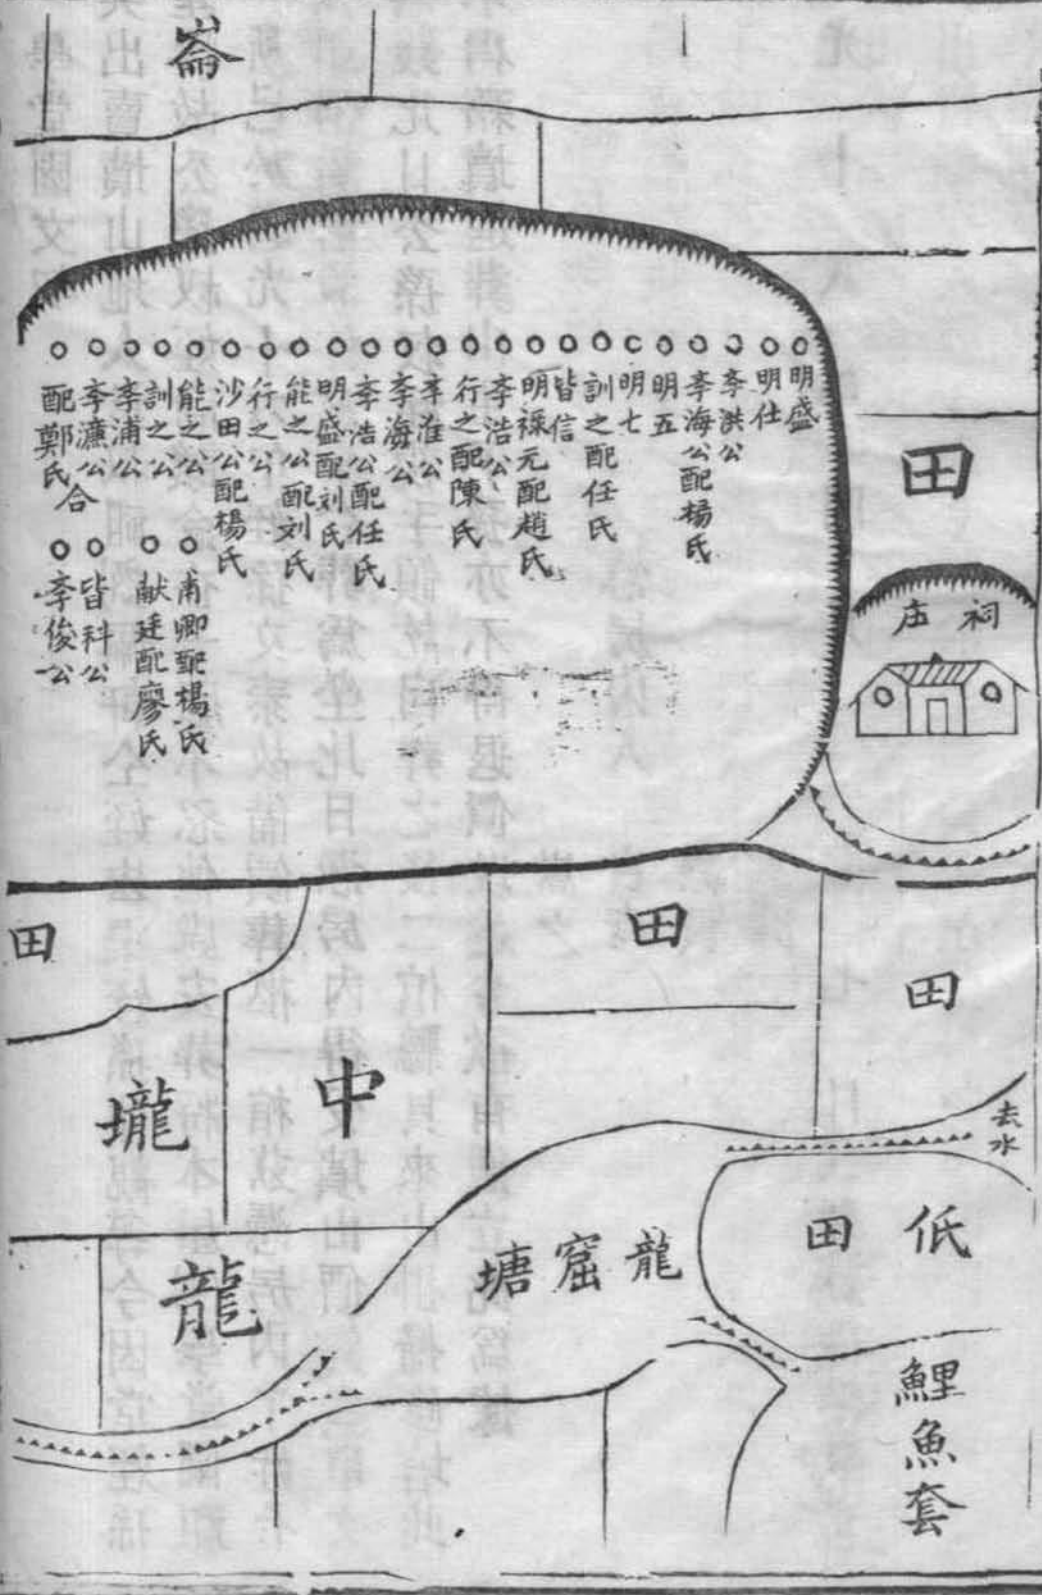 崙
明盛
明仕
李洪公
李海公配楊氏
明五
明七
訓之配任氏
皆信
明祿元配趙氏
李浩公
行之配陳氏
李淮公
李海公
李浩公配任氏
明盛配刘氏
能之公配刘氏
行之公
沙田公配楊氏
能之公
訓之公
李浦公
李濂公
配鄭氏
合
甫卿配楊氏
献廷配廖氏
皆科公
李俊公
田
祠庄
田
田
田
中
壠
龍
去水
龍窟塘
低田
鯉魚套